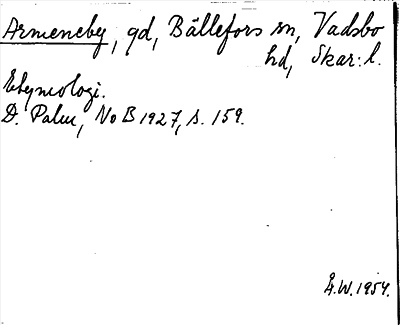 Armeneby, gd, Bällefors sn, Vadsbo
hd, Skar. l.
Etymologi.
D. Palm, NoB 1927, s. 159.
Å.W. 1954.